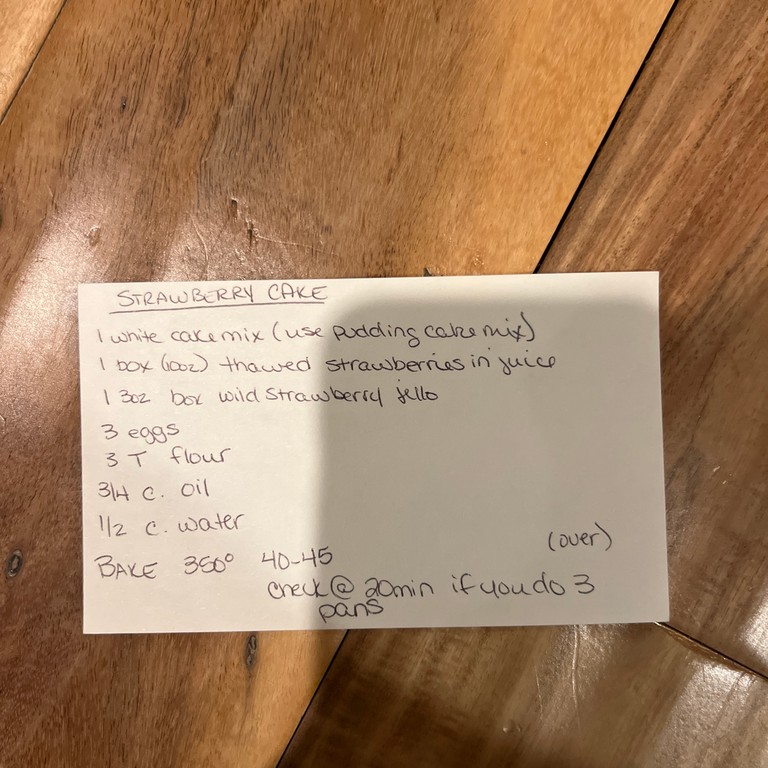 STRAWBERRY CAKE
1 white cake mix (use pudding cake mix)
1 box (10oz) thawed strawberries in juice
1 3oz box wild strawberry jello
3 eggs
3 T flour
3/4 c. oil
1/2 c. water
(over)
BAKE 350° 40-45
check @ 20min if you do 3
pans